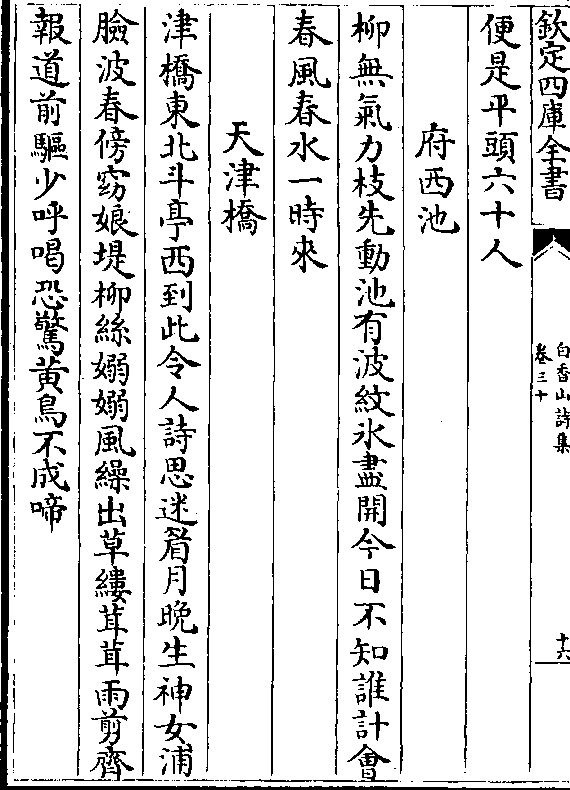 欽定四庫全書
白香山詩集
卷三十
十六
便是平頭六十人
府西池
柳無氣力枝先動池有波紋氷盡開今日不知誰計會
春風春水一時來
天津橋
津橋東北斗亭西到此令人詩思迷眉月晚生神女浦
臉波春傍窈娘堤柳絲嫋嫋風繰出草縷茸茸雨剪齊
報道前驅少呼喝恐驚黄鳥不成啼